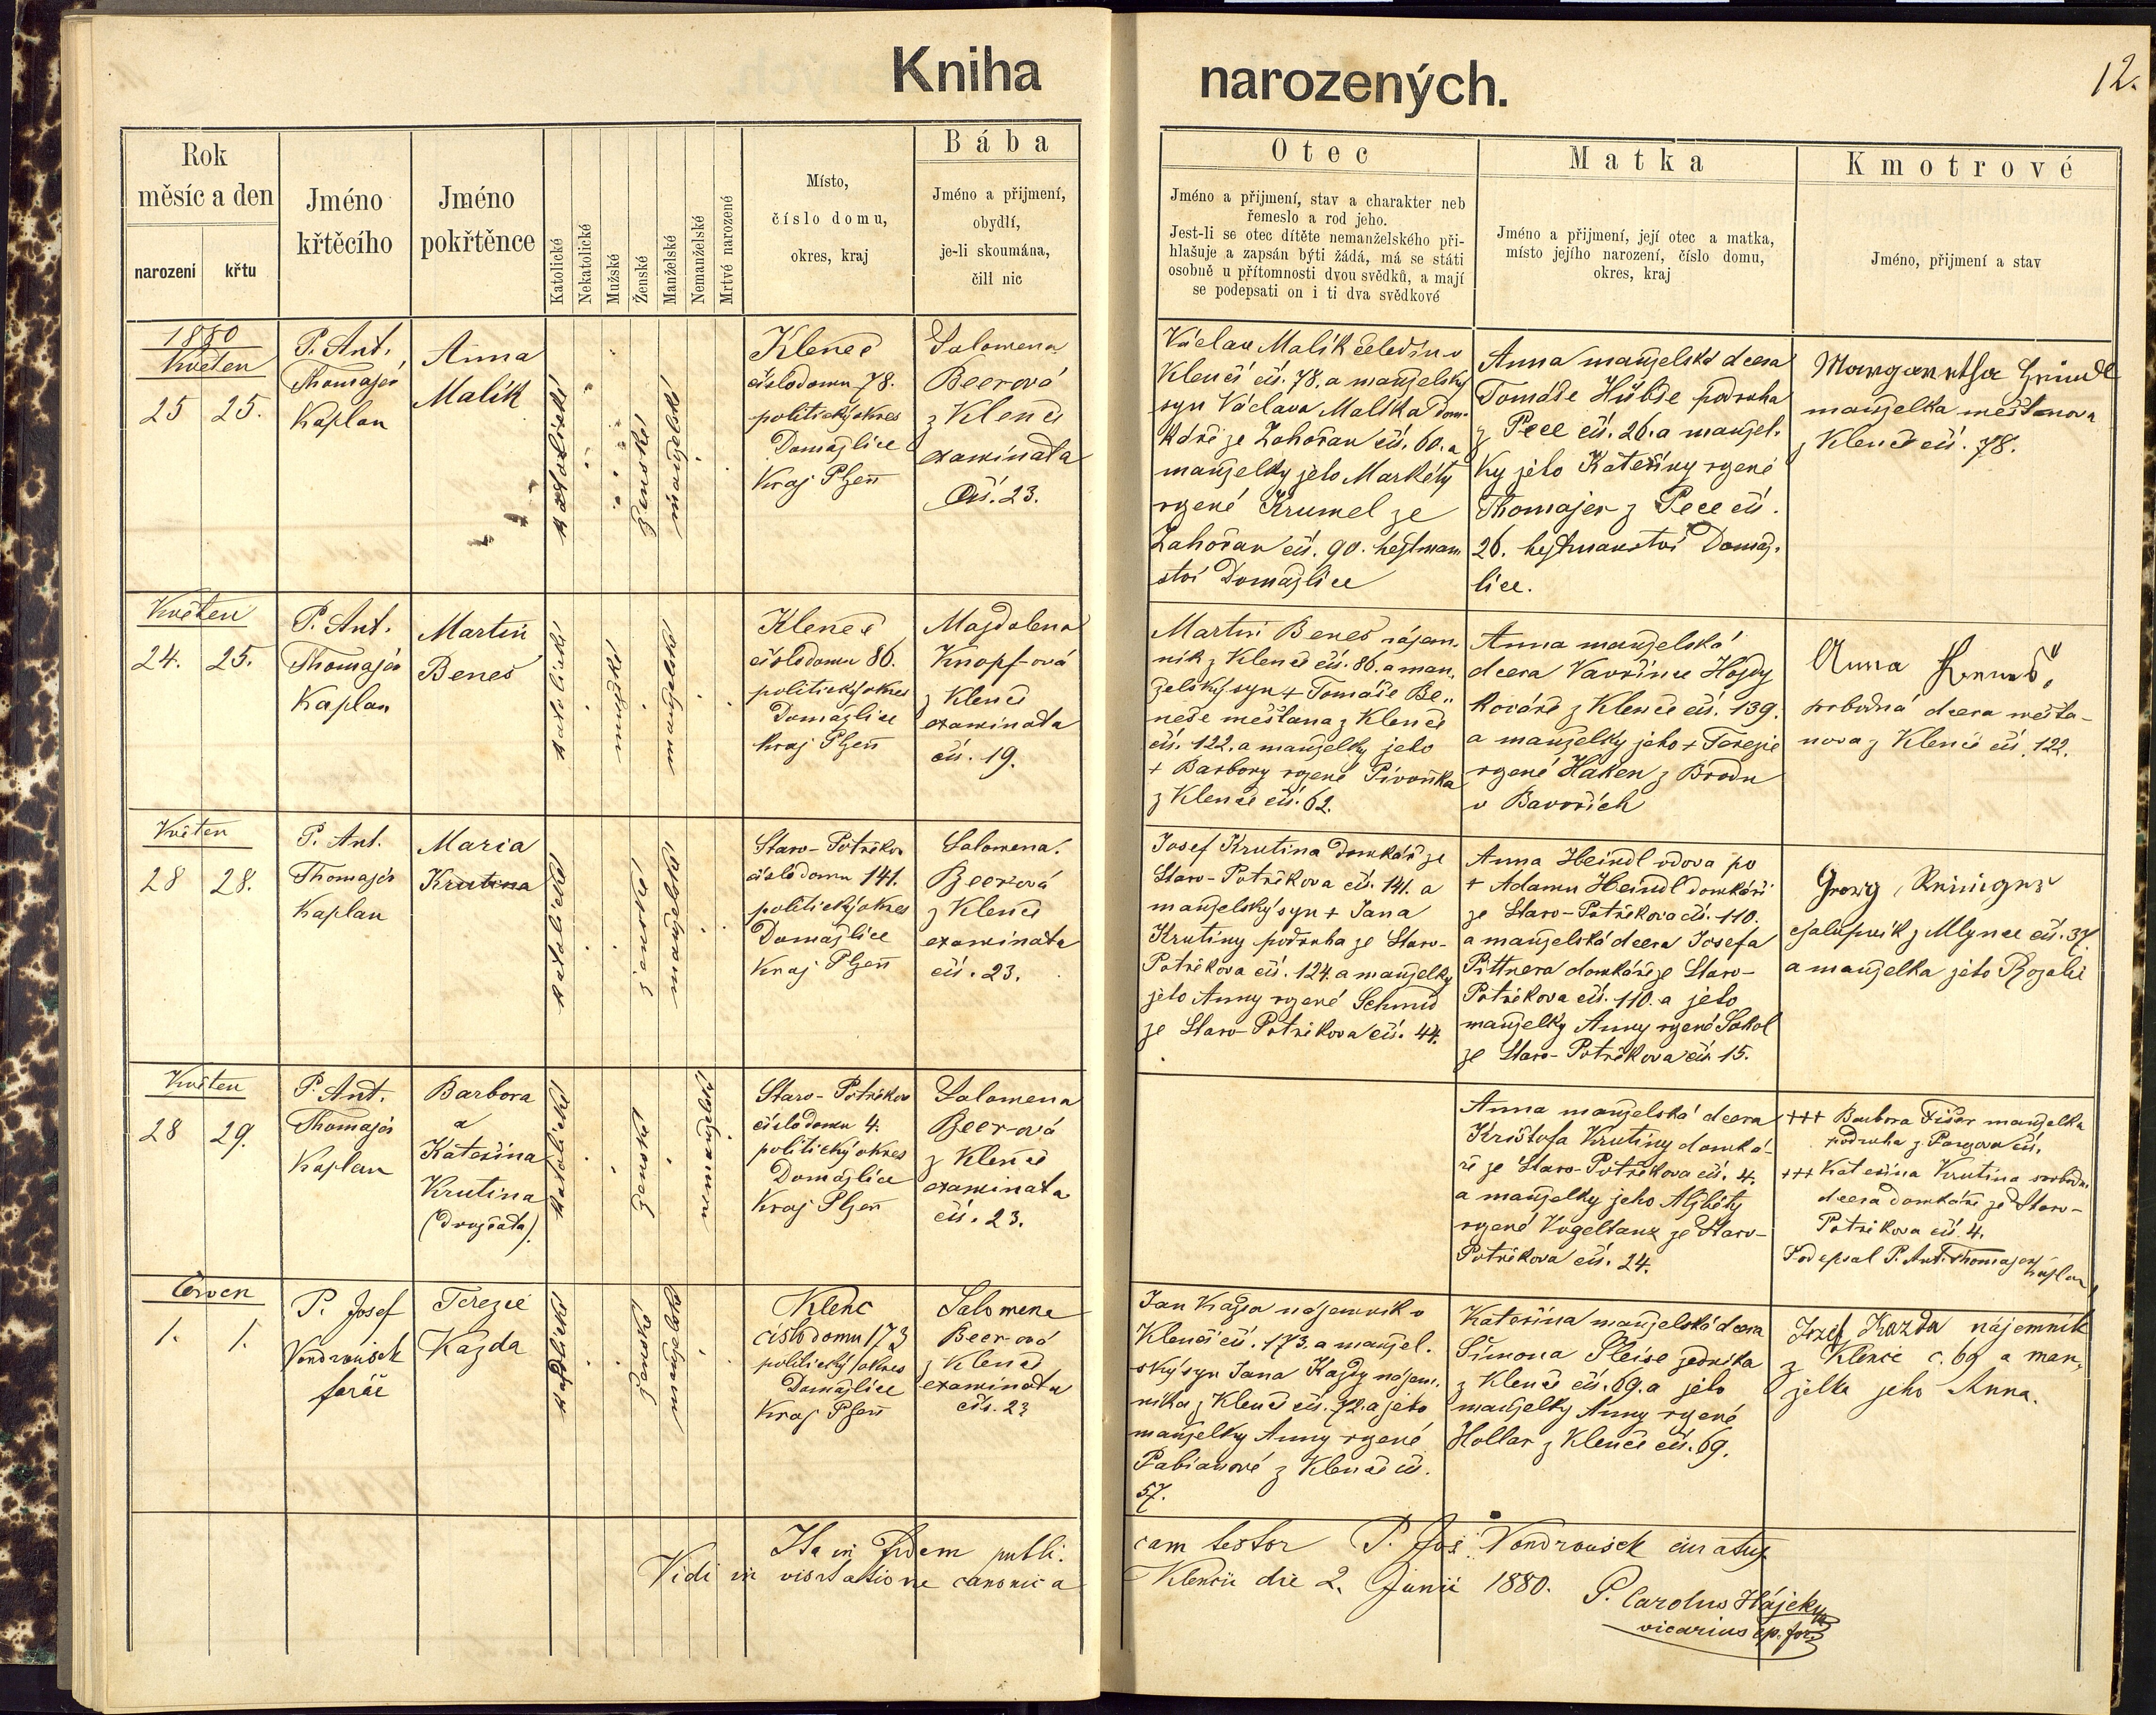 Kniha narozených.
12.
Rok
měsíc a den
narození
křtu
Jméno
křtěcího
Jméno
pokřtěnce
Katolické
Nekatolické
Mužské
Ženské
Manželské
Nemanželské
Mrtvé narozené
Místo,
číslo domu,
okres, kraj
Bába
Jméno a přijmení,
obydlí,
je-li skoumána,
čili nic
Otec
Jméno a přijmení, stav a charakter neb
řemeslo a rod jeho.
Jest-li se otec dítěte nemanželského při-
hlašuje a zapsán býti žádá, má se státi
osobně u přítomnosti dvou svědků, a mají
se podepsati on i ti dva svědkové
Matka
Jméno a přijmení, její otec a matka,
místo jejího narození, číslo domu,
okres, kraj
Kmotrové
Jméno, přijmení a stav
1880
Květen
25
25.
P. Ant.
Thomajer
Kaplan
Anna
Malík
katolické
ženské
manželské
Kleneč
číslo domu 78.
politický okres
Domažlice
Kraj Plzeň
Salomena
Beerová
z Klenče
examinata
čís. 23.
Václav Malík čeledín v
Klenči čís. 78. a manželský
syn Václava Malíka dom-
káře ze Zahořan čís. 60. a
manželky jeho Markéty
rozené Krumel ze
Zahořan čís. 90. hejtman
ství Domažlice
Anna manželská dcera
Tomáše Hübse podruha
z Pece čís. 26. a manžel-
ky jeho Kateřiny rozené
Thomajer z Pece čís.
26. hejtmanství Domaž-
lice.
Margaretha
manželka měšťanova
z Klenče čís. 78.
Květen
24.
25.
P. Ant.
Thomajer
Kaplan
Martin
Beneš
katolické
mužské
manželské
Kleneč
číslo domu 86.
politický okres
Domažlice
kraj Plzeň
Magdalena
Knopf-ová
z Klenče
examinata
čís. 19.
Martin Beneš nájem-
ník z Klenče čís. 86. a man-
želský syn + Tomáše Be-
neše měšťana z Klenče
čís. 122. a manželky jeho
+ Barbory rozené Pivoňka
z Klenče čís. 62.
Anna manželská
dcera Vavřince Hojdy
kováře z Klenče čís. 139.
a manželky jeho + Terezie
rozené Haken z Brodu
v Bavořích
Anna
svobodná dcera měšťa-
nova z Klenče čís. 122.
Květen
28
28.
P. Ant.
Thomajer
Kaplan
Maria
Krutina
katolické
ženské
manželské
Staro-Potřékov
číslo domu 141.
politický okres
Domažlice
Kraj Plzeň
Salomena
Beerová
z Klenče
examinata
čís. 23.
Josef Krutina domkář ze
Staro-Potřékova čís. 141. a
manželský syn + Jana
Krutiny podruha ze Staro-
Potřékova čís. 124. a manželky
jeho Anny rozené Schmid
ze Staro-Potřékova čís. 44.
Anna Heindl vdova po
+ Adamu Heindl domkáři
ze Staro-Potřékova čís. 110.
a manželská dcera Josefa
Pittnera domkáře ze Staro-
Potřékova čís. 110. a jeho
manželky Anny rozené Sokol
ze Staro-Potřékova čís. 15.
Georg
chalupník z Mlynce čís. 37.
a manželka jeho Rozalie
Květen
28
29.
P. Ant.
Thomajer
Kaplan
Barbora
a
Kateřina
Krutina
(dvojčata).
katolické
ženské
nemanželské
Staro-Potřékov
číslo domu 4.
politický okres
Domažlice
Kraj Plzeň
Salomena
Beer-ová
z Klenče
examinata
čís. 23.
Anna manželská dcera
Krištofa Krutiny domká-
ře ze Staro-Potřékova čís. 4.
a manželky jeho Alžběty
rozené Vogeltanz ze Staro-
Potřékova čís. 24.
+++ Barbora Fišer manželka
podruha z Pargova čís.
+++ Kateřina Krutina svobodná
dcera domkáře ze Staro-
Potřékova čís. 4.
Podepsal P. Ant. Thomajer kaplan
Červen
1.
1.
P. Josef
Vondroušek
farář
Terezie
Kazda
katolické
ženské
manželské
Klenč
číslo domu 173
politický okres
Domažlice
Kraj Plzeň
Salomena
Beer-ová
z Klenče
examinata
čís. 23
Jan Kazda nájemník v
Klenči čís. 173. a manžel-
ský syn Jana Kazdy nájem-
níka z Klenče čís. 72. a jeho
manželky Anny rozené
Fabianové z Klenče čís.
57.
Kateřina manželská dcera
Šimona Pleise sedníka
z Klenče čís. 69. a jeho
manželky Anny rozené
Hollar z Klenče čís. 69.
Josef Kazda nájemník
z Klenče č. 69 a man-
želka jeho Anna.
Ita in fidem publi-
cam testor P. Jos. Vondroušek curatus
Vidi in visitatione canonica
Klenčii die 2. Junii 1880.
P. Carolus Hájek
vicarius ep. for.